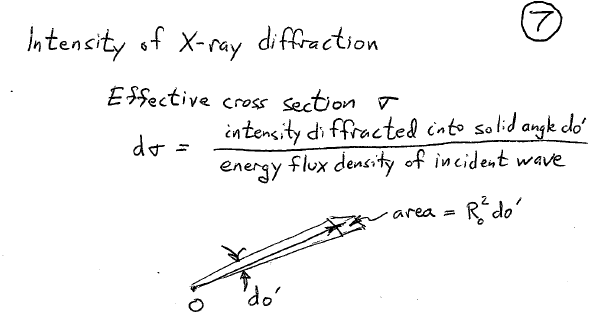 7
Intensity of X-ray diffraction
Effective cross section σ
dσ = intensity diffracted into solid angle do'
energy flux density of incident wave
area = R₀² do'
do'
O